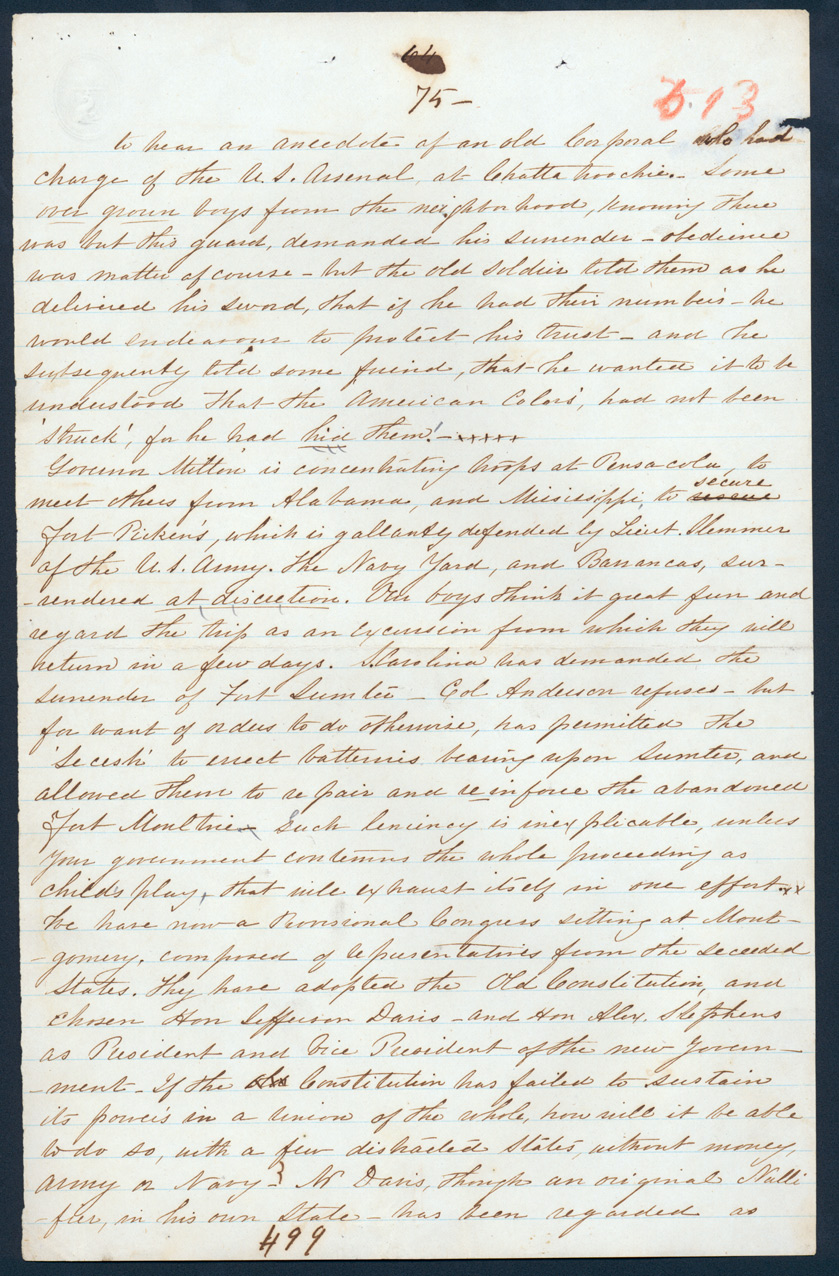 75-
613
to hear an anecdote of an old Corporal who had
charge of the U.S. Arsenal, at Chattahoochie. Some
over grown boys from the neighborhood, knowing there
was but this guard, demanded his surrender - obedience
was matter of course - but the old soldier told them as he
delivered his sword, that if he had their numbers - he
would endeavour to protect his trust - and he
subsequently told some friend, that he wanted it to be
understood that the American Colors', had not been
'struck', for he had hid them! - xxxxx
Governor Milton is concentrating troops at Pensacola, to
meet others from Alabama, and Mississippi, to rescue secure
Fort Picken's, which is gallantly defended by Lieut. Slemmer
of the U.S. Army. The Navy Yard, and Barrancas, sur-
-rendered at discretion. Our boys think it great fun and
regard the trip as an excursion from which they will
return in a few days. S. Carolina has demanded the
surrender of Fort Sumter - Col Anderson refuses - but
for want of orders to do otherwise, has permitted the
'Secesh' to erect batteries bearing upon Sumter, and
allowed them to repair and reinforce the abandoned
Fort Moultrie - Such leniency is inexplicable, unless
your government contemns the whole proceeding as
child's play, that will exhaust itself in one effort. xx
We have now a Provisional Congress sitting at Mont-
-gomery, composed of representatives from the seceded
States. They have adopted the Old Constitution, and
chosen Hon Jefferson Davis - and Hon Alex. Stephens
as President and Vice President of the new Govern-
-ment - If the old Constitution has failed to sustain
its powers in a union of the whole, how will it be able
to do so, with a few distracted States, without money,
army or Navy - } Mr Davis, though an original Nulli
-fier, in his own State - has been regarded as
499